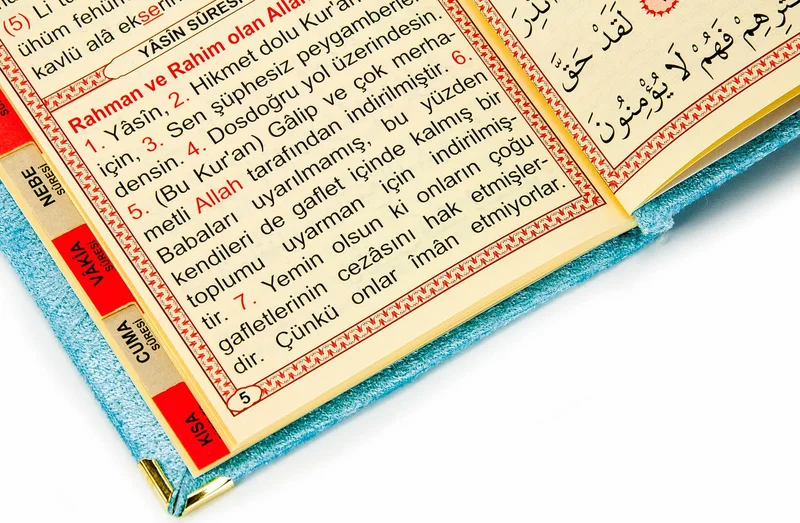 (5) Li
ühüm
kavlü alâ ekse
YÂSİN SÛRESİ
Rahman ve Rahim olan Allah
1. Yâsîn, 2. Hikmet dolu Kur'an
için, 3. Sen şüphesiz peygamberler
densin. 4. Dosdoğru yol üzerindesin.
5. (Bu Kur'an) Gâlip ve çok merha-
metli Allah tarafından indirilmiştir. 6.
Babaları uyarılmamış, bu yüzden
kendileri de gaflet içinde kalmış bir
toplumu uyarman için indirilmiş-
tir. 7. Yemin olsun ki onların çoğu
gafletlerinin cezâsını hak etmişler-
dir. Çünkü onlar îmân etmiyorlar.
5
NEBE
SÛRESİ
VÂKİA
SÛRESİ
CUMA
SÛRESİ
KISA
لَقَدْ حَقَّ
فَهُمْ لَا يُؤْمِنُونَ